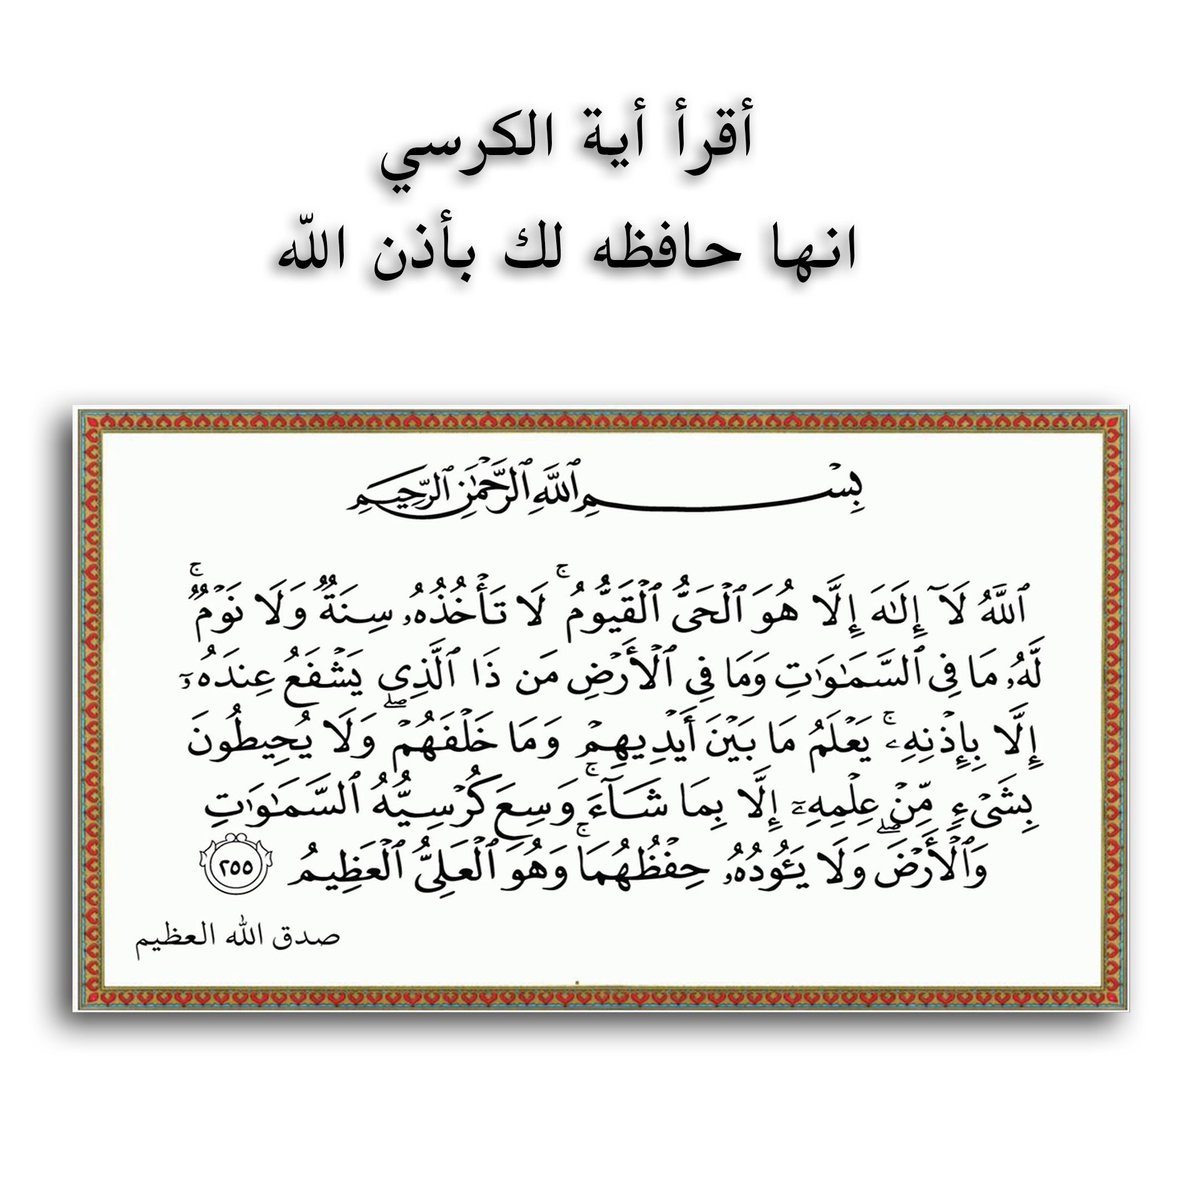 أقرأ أية الكرسي
انها حافظه لك بأذن الله
بِسْمِ ٱللَّهِ ٱلرَّحْمَٰنِ ٱلرَّحِيمِ
ٱللَّهُ لَآ إِلَٰهَ إِلَّا هُوَ ٱلْحَىُّ ٱلْقَيُّومُ ۚ لَا تَأْخُذُهُۥ سِنَةٌ وَلَا نَوْمٌ ۚ
لَّهُۥ مَا فِى ٱلسَّمَٰوَٰتِ وَمَا فِى ٱلْأَرْضِ مَن ذَا ٱلَّذِى يَشْفَعُ عِندَهُۥٓ
إِلَّا بِإِذْنِهِۦ ۚ يَعْلَمُ مَا بَيْنَ أَيْدِيهِمْ وَمَا خَلْفَهُمْ ۖ وَلَا يُحِيطُونَ
بِشَىْءٍ مِّنْ عِلْمِهِۦٓ إِلَّا بِمَا شَآءَ ۚ وَسِعَ كُرْسِيُّهُ ٱلسَّمَٰوَٰتِ
وَٱلْأَرْضَ ۖ وَلَا يَـُٔودُهُۥ حِفْظُهُمَا ۚ وَهُوَ ٱلْعَلِىُّ ٱلْعَظِيمُ ٢٥٥
صدق الله العظيم